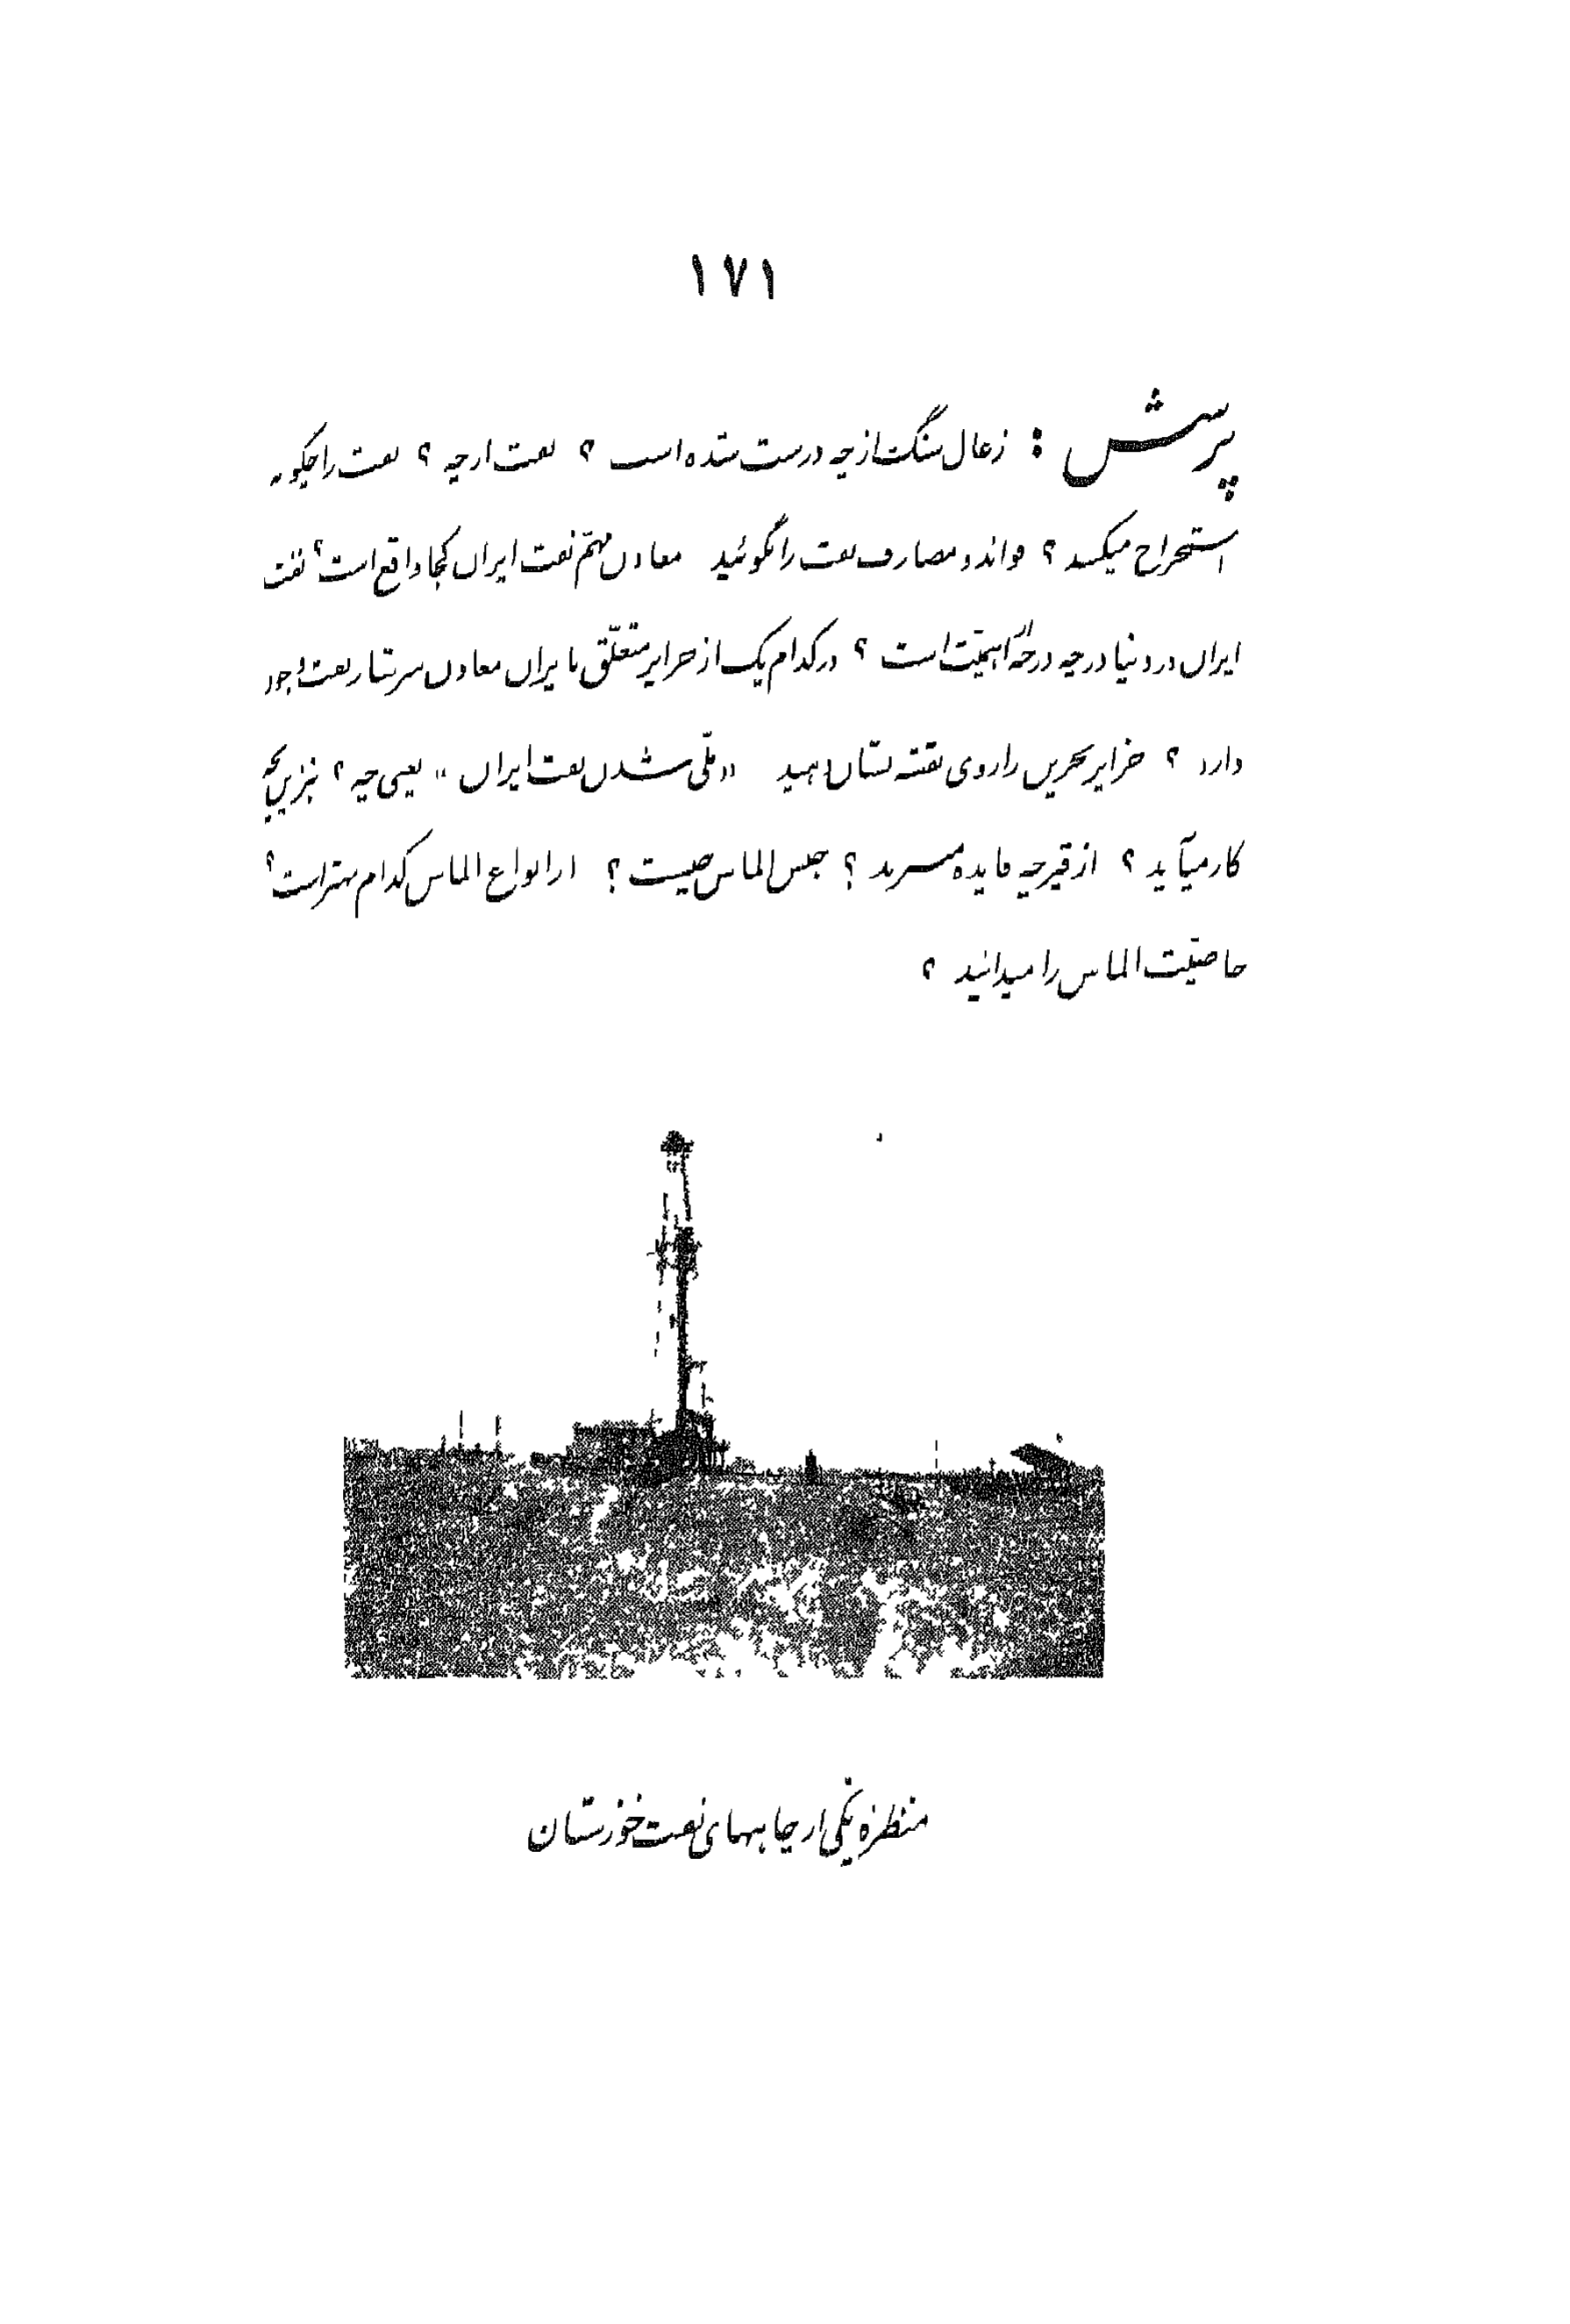 ۱۷۱
پرسش : زغال سنگ از چه درست شده است ؟ نفت از چه ؟ نفت را چگونه
استخراج میکنند ؟ فوائد و مصارف نفت را بگوئید معادن مهمّ نفت ایران کجا واقع است ؟ نفت
ایران در دنیا در چه درجهٔ اهمیّت است ؟ در کدام یک از جزایر متعلّق بایران معادن سرشار نفت وجود
دارد ؟ جزایر بحرین را روی نقشه نشان دهید «ملّی شدن نفت ایران» یعنی چه ؟ بنزین بچه
کار میآید ؟ از قیر چه فایده میبرند ؟ جنس الماس چیست ؟ از انواع الماس کدام بهتر است ؟
خاصیّت الماس را میدانید ؟
منظرهٔ یکی از چاههای نفت خوزستان